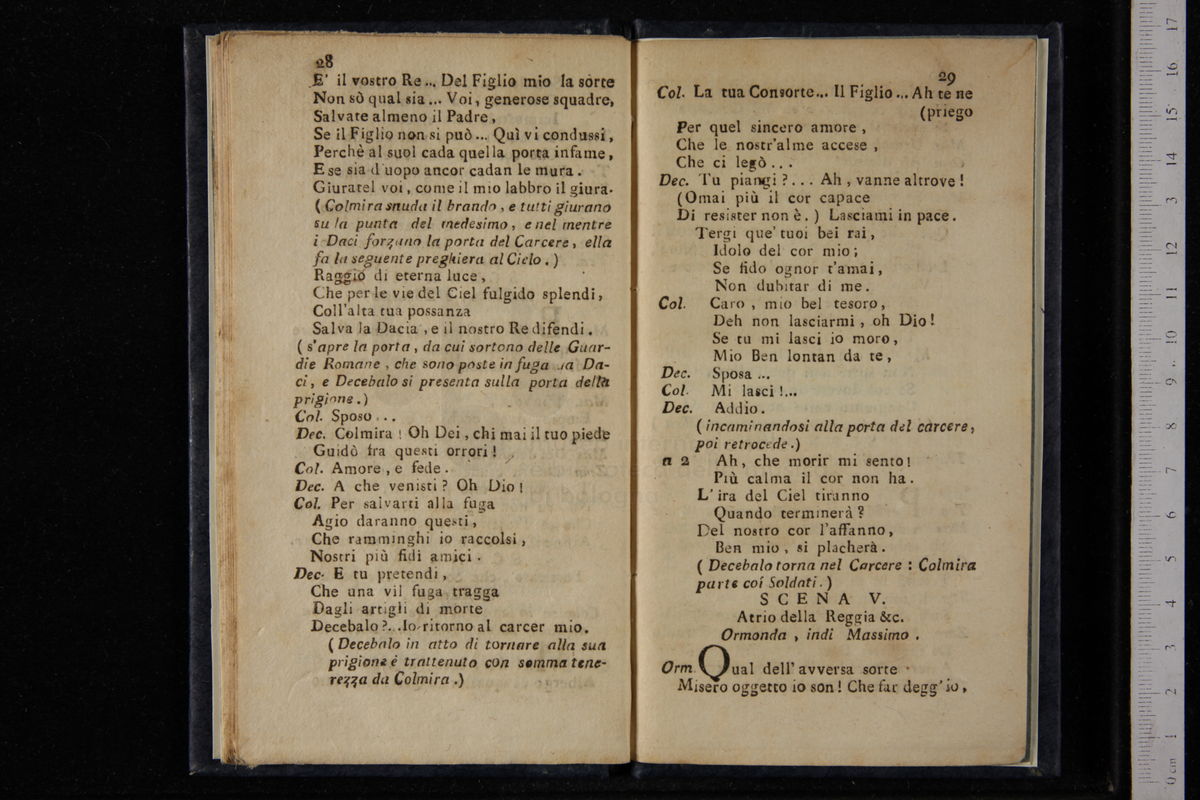 28
E' il vostro Re... Del Figlio mio la sorte
Non sò qual sia ... Voi, generose squadre,
Salvate almeno il Padre,
Se il Figlio non si può ... Quì vi condussi,
Perchè al suol cada quella porta infame,
E se sia d'uopo ancor cadan le mura.
Giuratel voi, come il mio labbro il giura.
(Colmira snuda il brando, e tutti giurano
su la punta del medesimo, e nel mentre
i Daci forzano la porta del Carcere, ella
fa la seguente preghiera al Cielo.)
Raggio di eterna luce,
Che per le vie del Ciel fulgido splendi,
Coll'alta tua possanza
Salva la Dacia, e il nostro Re difendi.
(s'apre la porta, da cui sortono delle Guar-
die Romane, che sono poste in fuga da Da-
ci, e Decebalo si presenta sulla porta della
prigione.)
Col. Sposo ...
Dec. Colmira! Oh Dei, chi mai il tuo piede
Guidò fra questi orrori!
Col. Amore, e fede.
Dec. A che venisti? Oh Dio!
Col. Per salvarti alla fuga
Agio daranno questi,
Che ramminghi io raccolsi,
Nostri più fidi amici.
Dec. E tu pretendi,
Che una vil fuga tragga
Dagli artigli di morte
Decebalo?...Io ritorno al carcer mio.
(Decebalo in atto di tornare alla sua
prigione è trattenuto con somma tene-
rezza da Colmira.)
29
Col. La tua Consorte... Il Figlio ... Ah te ne
(priego
Per quel sincero amore,
Che le nostr'alme accese,
Che ci legò ...
Dec. Tu piangi?... Ah, vanne altrove!
(Omai più il cor capace
Di resister non è.) Lasciami in pace.
Tergi que' tuoi bei rai,
Idolo del cor mio;
Se fido ognor t'amai,
Non dubitar di me.
Col. Caro, mio bel tesoro,
Deh non lasciarmi, oh Dio!
Se tu mi lasci io moro,
Mio Ben lontan da te,
Dec. Sposa ...
Col. Mi lasci!...
Dec. Addio.
(incaminandosi alla porta del carcere,
poi retrocede.)
a 2 Ah, che morir mi sento!
Più calma il cor non ha.
L'ira del Ciel tiranno
Quando terminerà?
Del nostro cor l'affanno,
Ben mio, si placherà.
(Decebalo torna nel Carcere: Colmira
parte coi Soldati.)
SCENA V.
Atrio della Reggia &c.
Ormonda, indi Massimo.
Orm. Qual dell'avversa sorte
Misero oggetto io son! Che far degg'io,